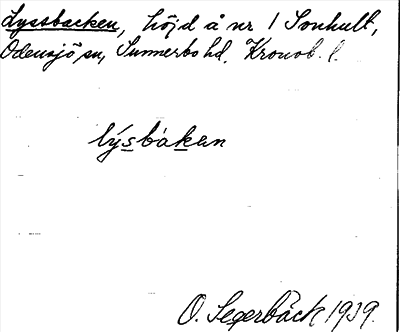 Lyssbacken, höjd å nr 1 Sonhult,
Odensjö sn, Sunnerbo hd. Kronob. l.
lýsbàkan
O. Segerbäck 1939.